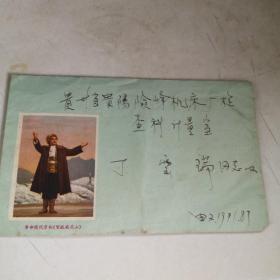 贵州省贵阳险峰机床厂检
查科计量室
丁雲瑞同志收
革命现代京剧《智取威虎山》